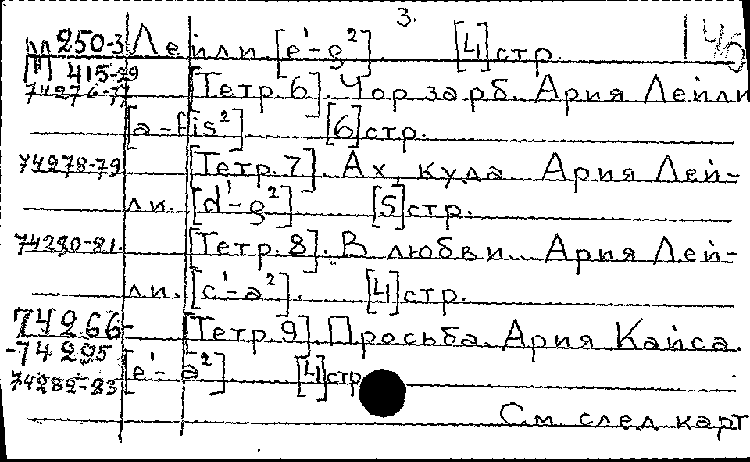 3.
М 250-3 Лейли [e'-g²]. [4] стр. 145
М 415-29
74276-77 [Тетр. 6]. Чор зарб. Ария Лейли
[a-fis²] [6] стр.
74278-79 [Тетр. 7]. Ах, куда. Ария Лей-
ли. [d'-g²] [5] стр.
74280-81. [Тетр. 8]. В любви... Ария Лей-
ли. [c'-a²]. [4] стр.
74266- [Тетр. 9]. Просьба. Ария Кайса.
-74295
74282-83 [e'-a²] [4] стр
См. след карт